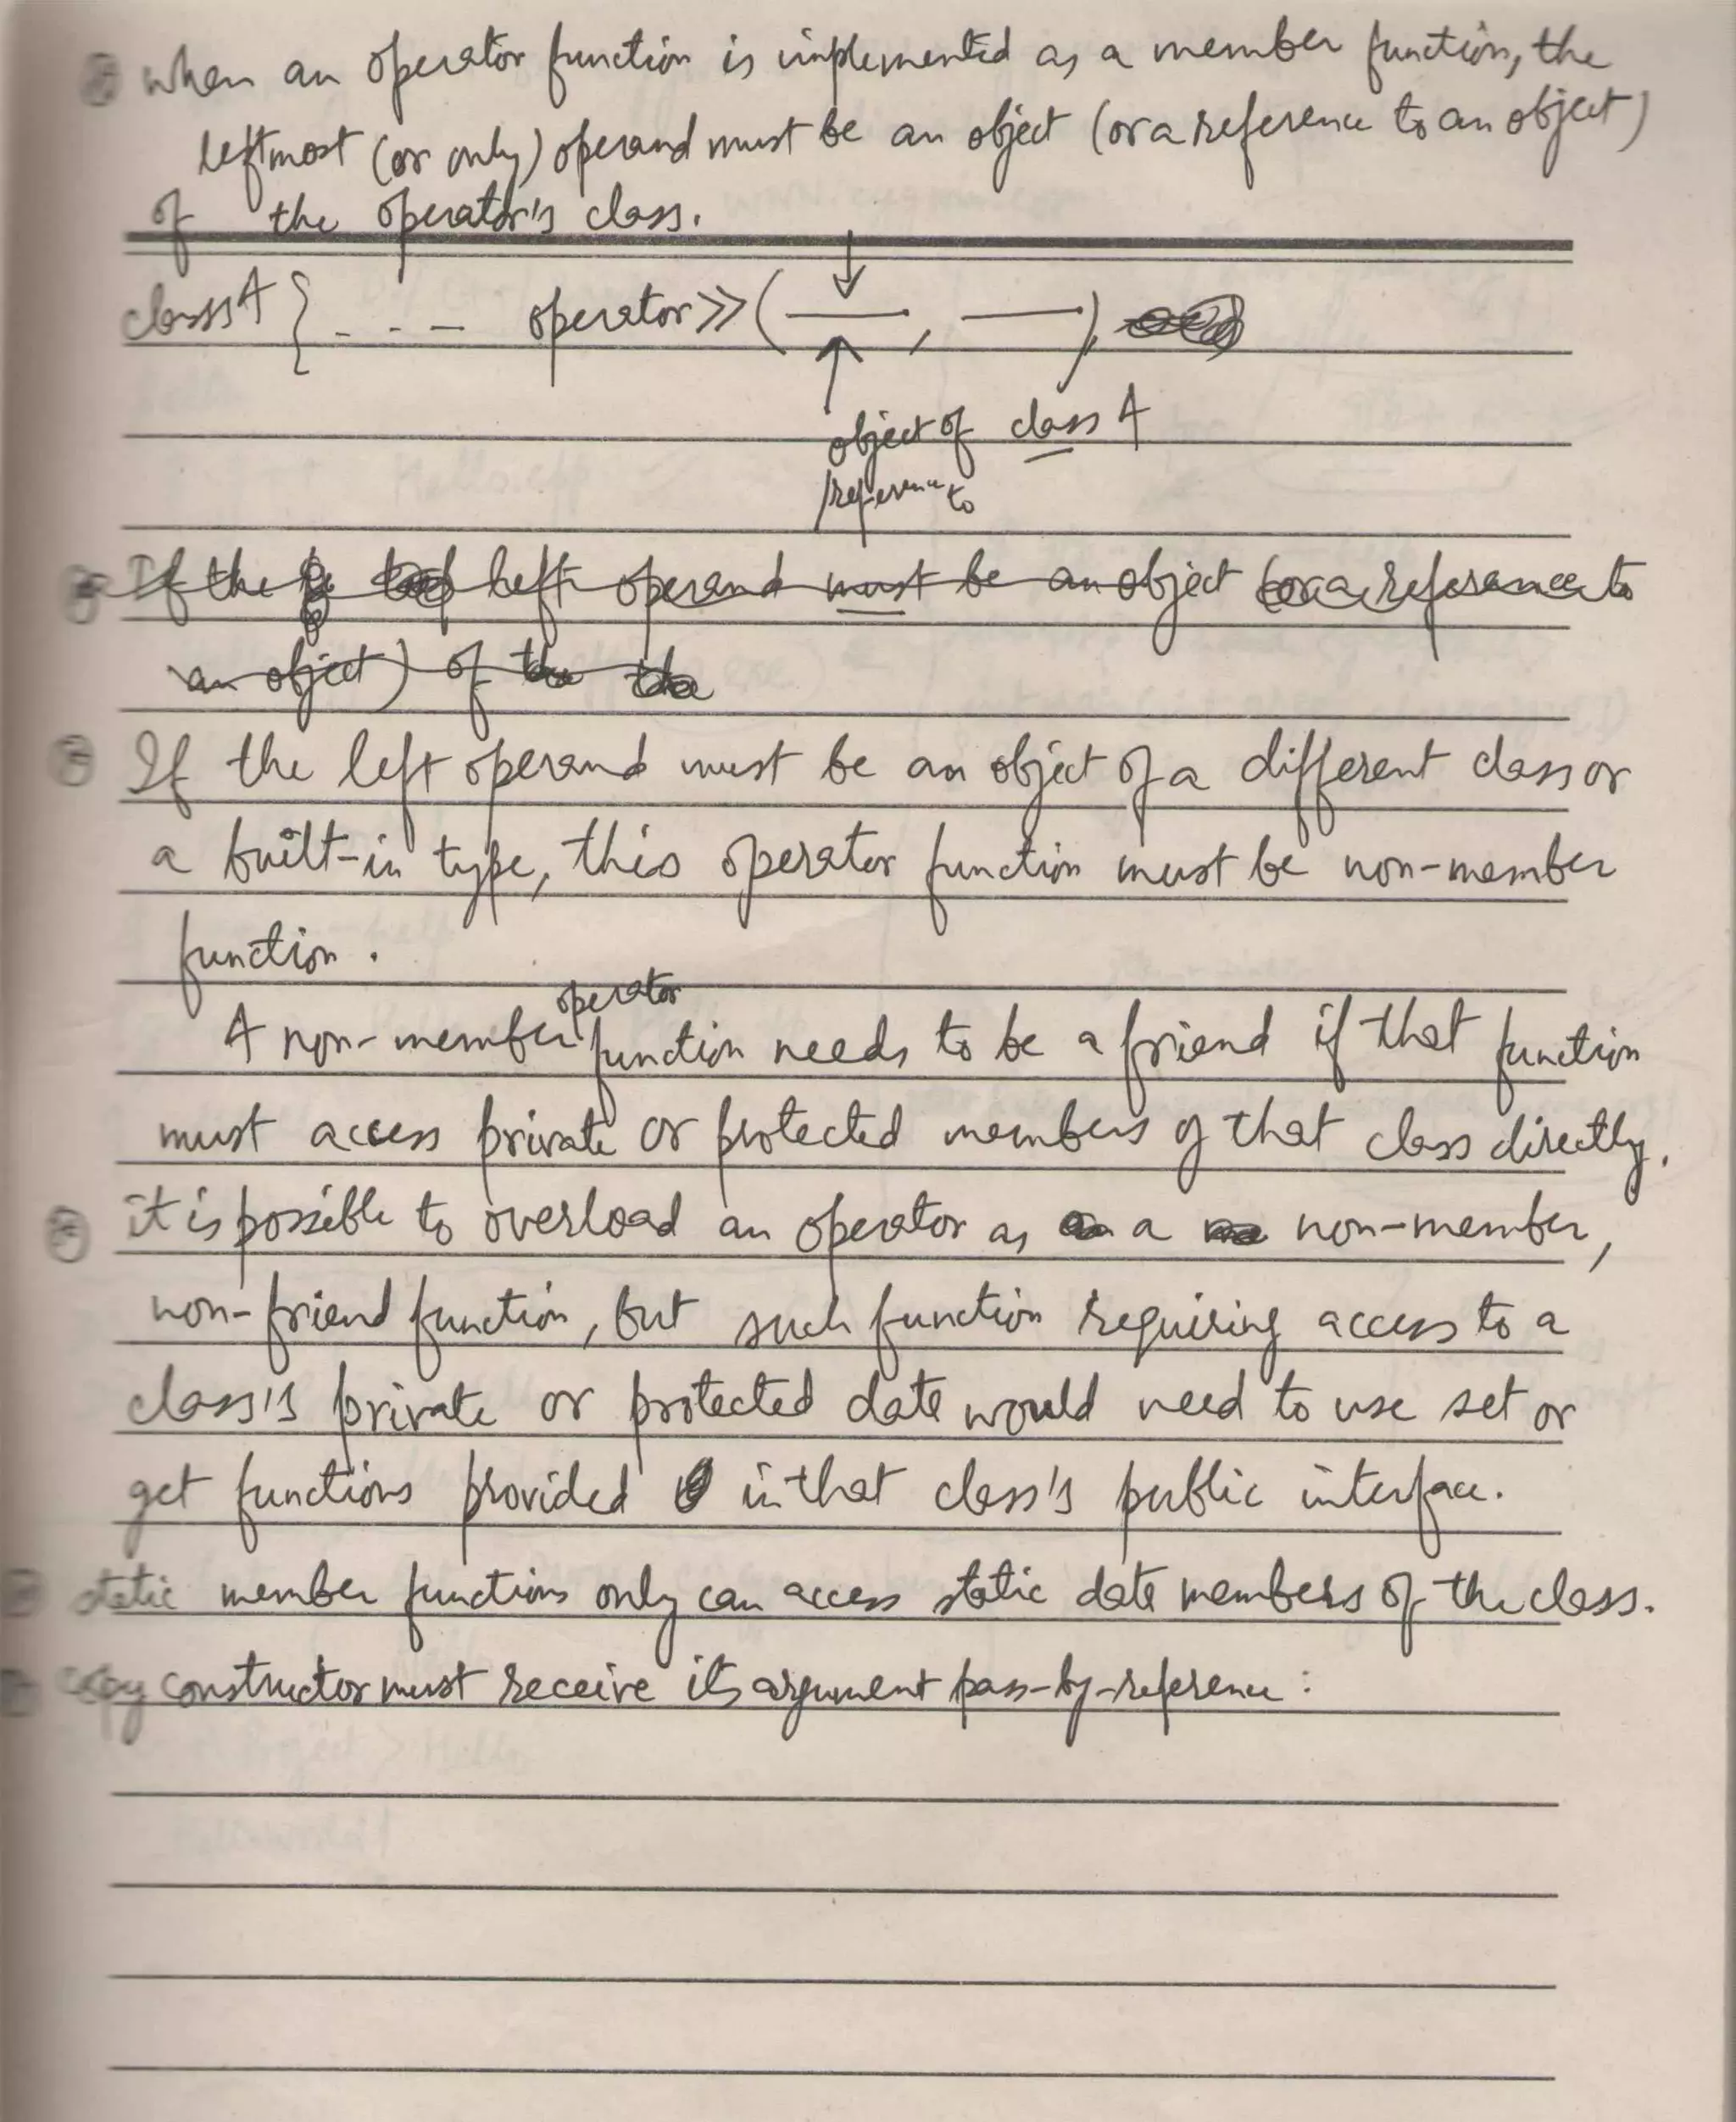 when an operator function is implemented as a member function, the
leftmost (or only) operand must be an object (or a reference to an object)
of the operator's class.
class A { . . . — operator >> ( — , — ),
object of class A
/reference to
If the left operand must be an object (or a reference to
an object) of the the
If the left operand must be an object of a different class or
a built-in type, this operator function must be non-member
function .
operator
A non-member function needs to be a friend if that function
must access private or protected members of that class directly.
it is possible to overload an operator as a non-member,
non-friend function, but such function requiring access to a
class's private or protected data would need to use set or
get functions provided in that class's public interface.
static member functions only can access static data members of the class.
copy constructor must receive its argument pass-by-reference :